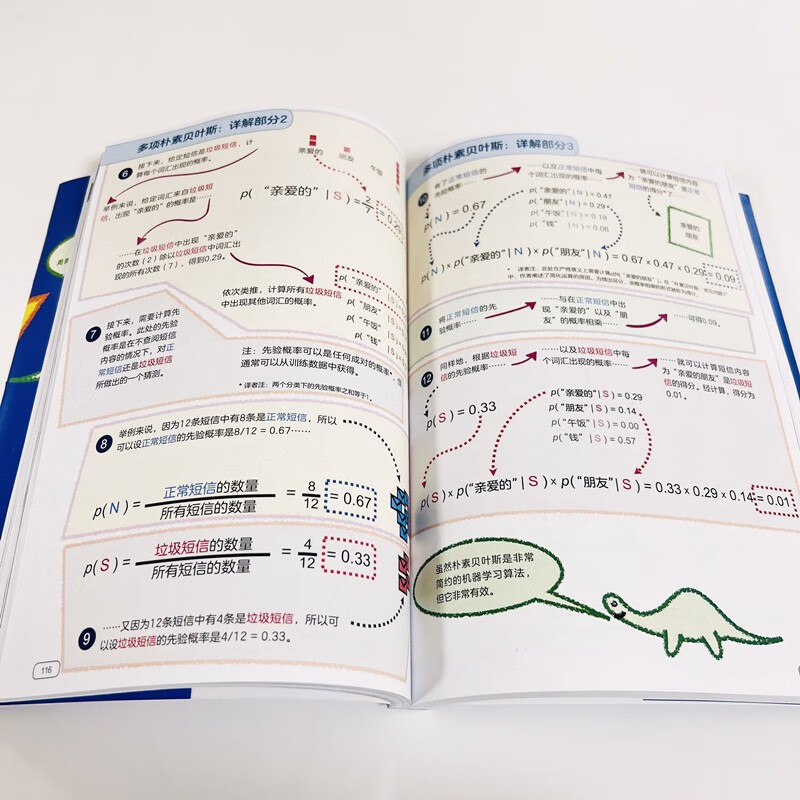 多项朴素贝叶斯：详解部分2
6
接下来，给定短信是垃圾短信，计
算每个词汇出现的概率。
亲爱的 朋友 午饭
举例来说，给定词汇来自垃圾短
信，出现“亲爱的”的概率是……
p( “亲爱的” | S ) = 2/7 = 0.29
……在垃圾短信中出现“亲爱的”
的次数（2）除以垃圾短信中词汇出
现的所有次数（7），得到0.29。
依次类推，计算所有垃圾短信
中出现其他词汇的概率。
p( “亲爱的”
p( “朋友”
p( “午饭” | S
p( “钱” | S
7
接下来，需要计算先
验概率。此处的先验
概率是在不查阅短信
内容的情况下，对正
常短信还是垃圾短信
所做出的一个猜测。
注：先验概率可以是任何成对的概率，
通常可以从训练数据中获得。
* 译者注：两个分类下的先验概率之和等于1。
8
举例来说，因为12条短信中有8条是正常短信，所以
可以设正常短信的先验概率是8/12 = 0.67……
p( N ) = 正常短信的数量/所有短信的数量 = 8/12 = 0.67
p( S ) = 垃圾短信的数量/所有短信的数量 = 4/12 = 0.33
9
……又因为12条短信中有4条是垃圾短信，所以可
以设垃圾短信的先验概率是4/12 = 0.33。
116
多项朴素贝叶斯：详解部分3
10
有了正常短信的
先验概率……
……以及正常短信中每
个词汇出现的概率……
……就可以计算短信内容
为“亲爱的朋友”是正常
短信的得分*了……
p(“亲爱的”| N ) = 0.47
p(“朋友”| N ) = 0.29
p(“午饭”| N ) = 0.18
p(“钱” | N ) = 0.06
亲爱的
朋友
p( N ) = 0.67
p( N ) × p(“亲爱的”| N ) × p(“朋友”| N ) = 0.67 × 0.47 × 0.29 = 0.09
11
将正常短信的先
验概率……
……与在正常短信中出
现“亲爱的”以及“朋
友”的概率相乘……
……可得0.09。
12
同样地，根据垃圾短
信的先验概率……
……以及垃圾短信中每
个词汇出现的概率……
……就可以计算短信内容
为“亲爱的朋友”是垃圾短
信的得分。经计算，得分为
0.01。
p( S ) = 0.33
p(“亲爱的”| S ) = 0.29
p(“朋友”| S ) = 0.14
p(“午饭”| S ) = 0.00
p(“钱” | S ) = 0.57
p( S ) × p(“亲爱的”| S ) × p(“朋友”| S ) = 0.33 × 0.29 × 0.14 = 0.01
虽然朴素贝叶斯是非常
简约的机器学习算法，
但它非常有效。